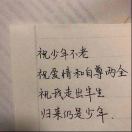 祝少年不老
祝爱情和自尊两全
祝我走出半生
归来仍是少年.